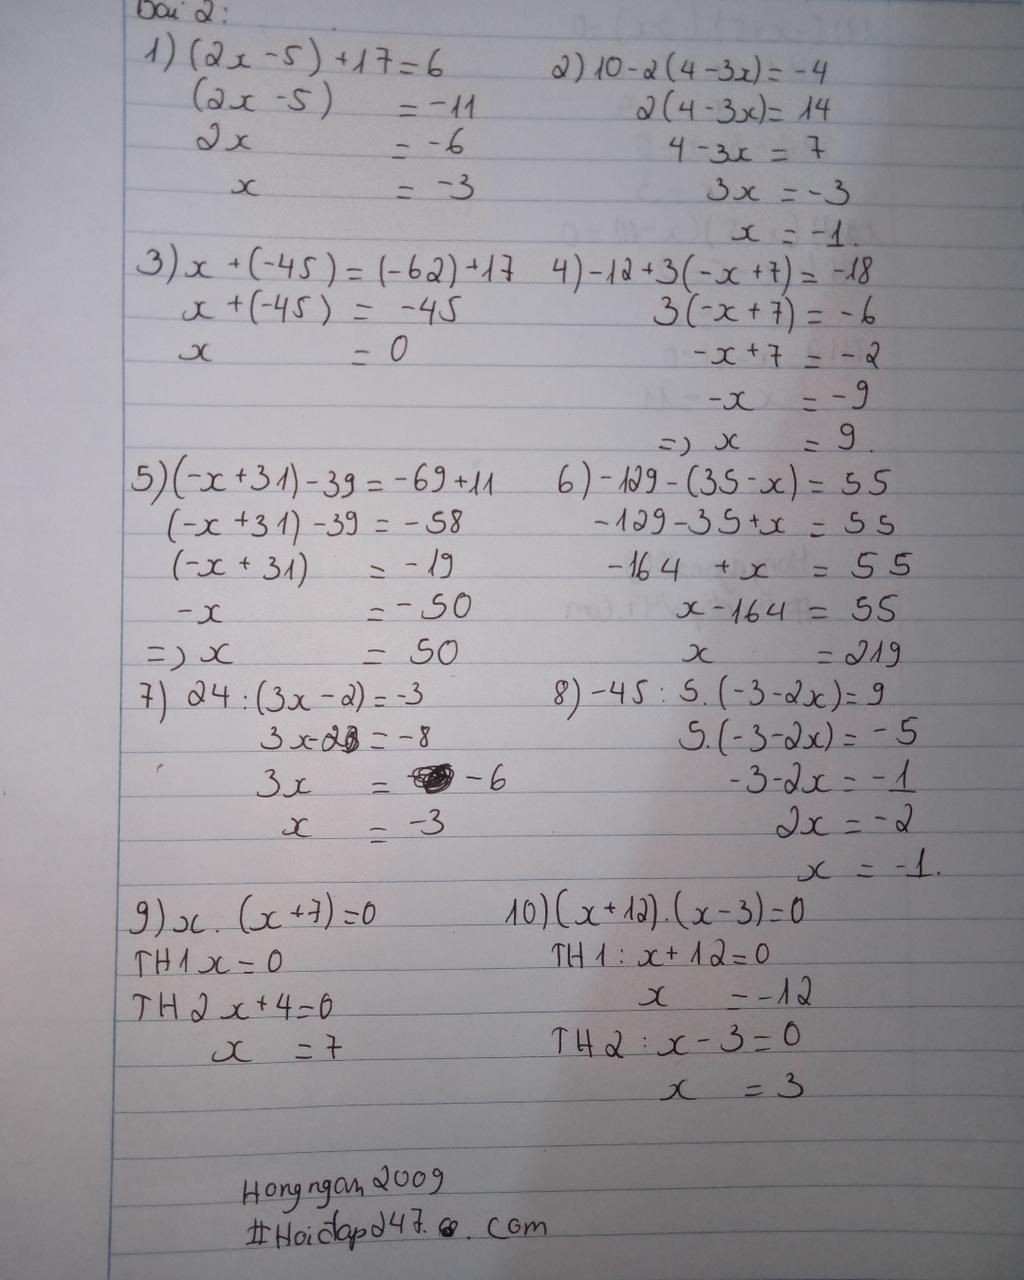 Bài 2:
1) (2x - 5) + 17 = 6
(2x - 5) = -11
2x = -6
x = -3
2) 10 - 2(4 - 3x) = -4
2(4 - 3x) = 14
4 - 3x = 7
3x = -3
x = -1.
3) x + (-45) = (-62) + 17
x + (-45) = -45
x = 0
4) -12 + 3(-x + 7) = -18
3(-x + 7) = -6
-x + 7 = -2
-x = -9
=> x = 9.
5) (-x + 31) - 39 = -69 + 11
(-x + 31) - 39 = -58
(-x + 31) = -19
-x = -50
=> x = 50
6) -129 - (35 - x) = 55
-129 - 35 + x = 55
-164 + x = 55
x - 164 = 55
x = 219
7) 24 : (3x - 2) = -3
3x - 2 = -8
3x = -6
x = -3
8) -45 : 5.(-3 - 2x) = 9
5.(-3 - 2x) = -5
-3 - 2x = -1
2x = -2
x = -1.
9) x. (x + 7) = 0
TH1 x = 0
TH2 x + 4 = 0
x = 7
10) (x + 12).(x - 3) = 0
TH1 : x + 12 = 0
x = -12
TH2 : x - 3 = 0
x = 3
Hongngan2009
#Hoidap247. com